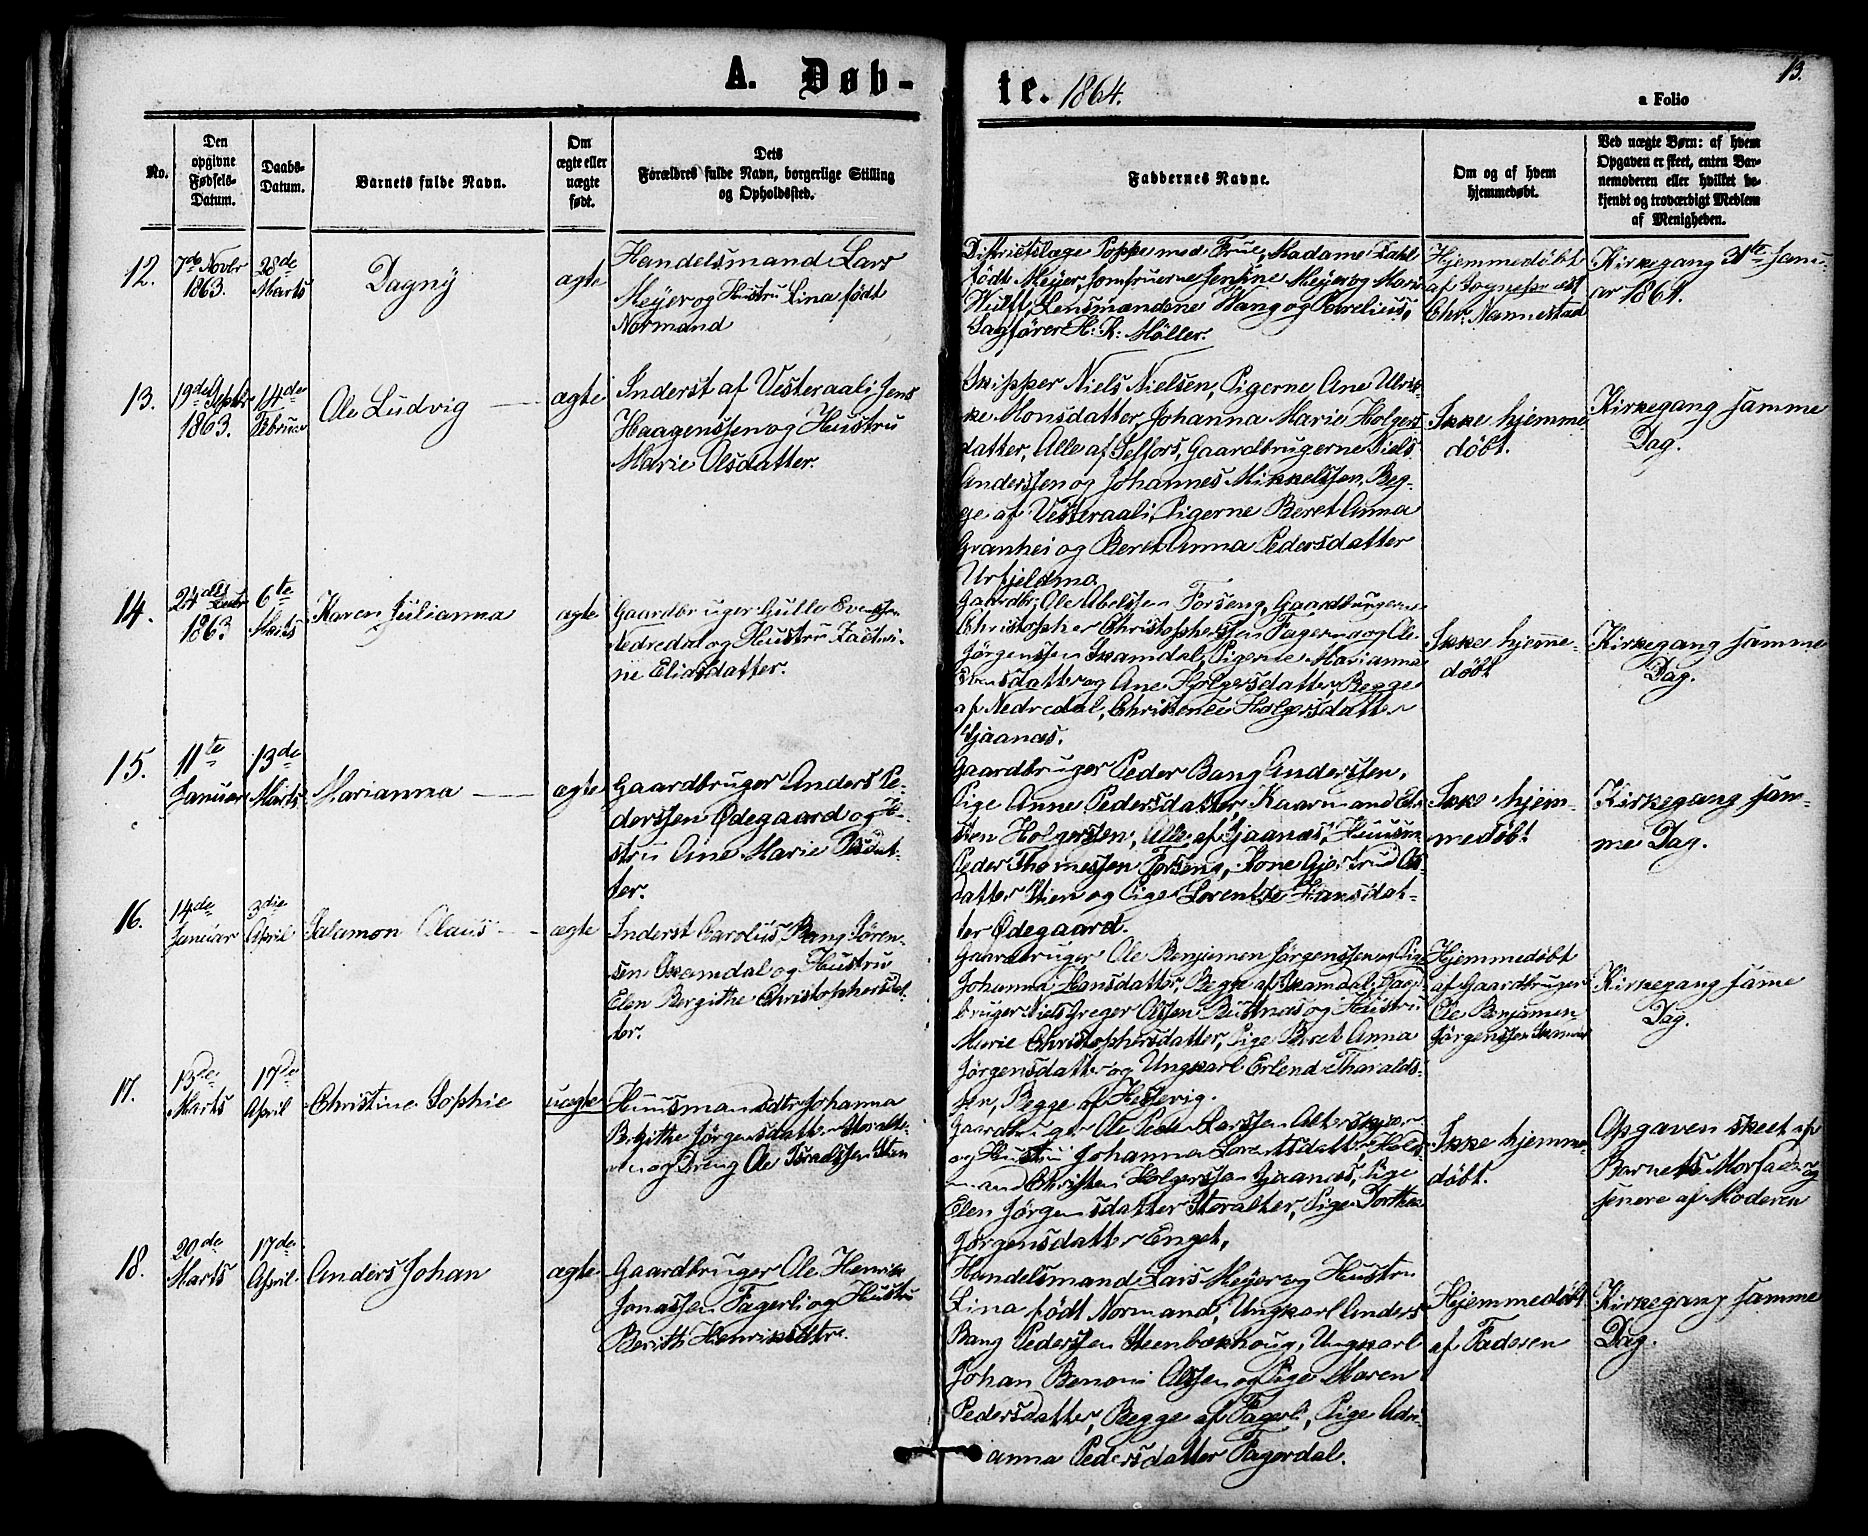 A. Døb-
te. 1864.
13.
a Folio
No.
Den
opgivne
Fødsels-
Datum.
Daabs-
Datum.
Barnets fulde Navn.
Om
ægte eller
uægte
født.
Dets
Forældres fulde Navn, borgerlige Stilling
og Opholdssted.
Faddernes Navne.
Om og af hvem
hjemmedøbt.
Ved uægte Børn: af hvem
Opgaven er skeet, enten Bar-
nemoderen eller hvilket be-
kjendt og troværdigt Medlem
af Menigheden.
12.
7de Novbr
1863.
28de
Marts
Dagny
ægte
Handelsmand Lars
Meyer og Hustru Lina født
Normand
Districtslæge Poppe med Frue, Madame Dahl
født Meyer, Jomfruerne Jensine Meyer og Marie
Wulff, Lensmændene Wang og Parelius,
Sagfører H. K. Møller.
Hjemmedøbt
af Sognepræst
Chr. Nannestad
Kirkegang 31te Janu-
ar 1864.
13.
19de Septbr
1863.
14de
Februar
Ole Ludvig
ægte
Inderst af Vesteraali Jens
Haagenssen og Hustru
Marie Olsdatter.
Skipper Niels Nielsen, Pigerne Ane Ulrik-
ke Monsdatter, Johanna Marie Holgers-
datter, Alle af Selfors, Gaardbrugerne Niels
Anderssen og Johannes Mikkelssen, Beg-
ge af Vesteraali, Pigerne Beret Anna
Granhei og Beret Anna Pedersdatter
Urfjeldmo
Ikke hjemme
døbt.
Kirkegang samme
Dag.
14.
24de
1863
6te
Marts
Karen Julianna
ægte
Gaardbruger Gullo Evenssen
Nedredal og Hustru
ne Eliasdatter.
Gaardbr. Ole Abelssen Forseng, Gaardbrugerne
Christopher Christopherssen Fagermo og Ole
Jørgenssen Skamdal, Pigerne Marianna
datter og Ane Holgersdatter, Begge
af Nedredal, Christense Holgersdatter
Sjaanæs.
Ikke hjemme-
døbt
Kirkegang samme
Dag.
15.
11te
Januar
13de
Marts
Marianna
ægte
Gaardbruger Anders Pe-
derssen Ødegaard og Hu-
stru Ane Marie Olsdat-
ter.
Gaardbruger Peder Bang Anderssen,
Pige Anne Pedersdatter, Kaarmand
Holgerssen, Alle af Sjaanæs, Huusm.
Peder Thomessen Forseng, Kone Gjertrud Ols-
datter Stien og Pige Lorentse Hansdat-
ter Ødegaard.
Ikke hjem-
medøbt
Kirkegang sam-
me Dag.
16.
14de
Januar
3die
April
Salamon Olaus
ægte
Inderst Carolus Bang Søren-
sen Skamdal og Hustru
Elen Bergithe Christophersdat-
ter.
Gaardbruger Ole Benjamen Jørgenssen og Pige
Johanna Hansdatter, Begge af Skamdal, Gaard-
bruger Niels Greger Olssen Bustnæs og Hustru
Marie Christophersdatter, Pige Beret Anna
Jørgensdatter og Ungkarl Erlend Tharalds-
sen, Begge af Hellervig.
Hjemmedøbt
af Gaardbruger
Ole Benjamen
Jørgenssen Skamdal
Kirkegang samme
Dag.
17.
13de
Marts
17de
April
Christine Sophie
uægte
Huusmandsdtr Johanna
Birgithe Jørgensdatter Storalte-
ren og Dreng Ole Israelssen Stien
Gaardbruger Ole Peder Larssen Alterskjær
og Hustru Johanna Lorentsdatter, Huus-
mand Christen Holgerssen Sjaanæs, Pige
Elen Jørgensdatter Storalter, Pige Dorthea
Jørgensdatter Enget,
Ikke hjemme
døbt.
Opgaven skeet af
Barnets Morfader og
senere af Moderen
18.
20de
Marts
17de
April
Anders Johan
ægte
Gaardbruger Ole Henrik
Jonassen Fagerli og Hustru
Berith Henriksdtr.
Handelsmand Lars Meyer og Hustru
Lina født Normand, Ungkarl Anders
Bang Pederssen Steenbækhoug, Ungkarl
Johan Benoni Olssen og Pige Maren
Pedersdatter, Begge af Fagerli, Pige Adri-
anna Pedersdatter Fagerdal.
Hjemmedøbt
af Faderen
Kirkegang samme
Dag.